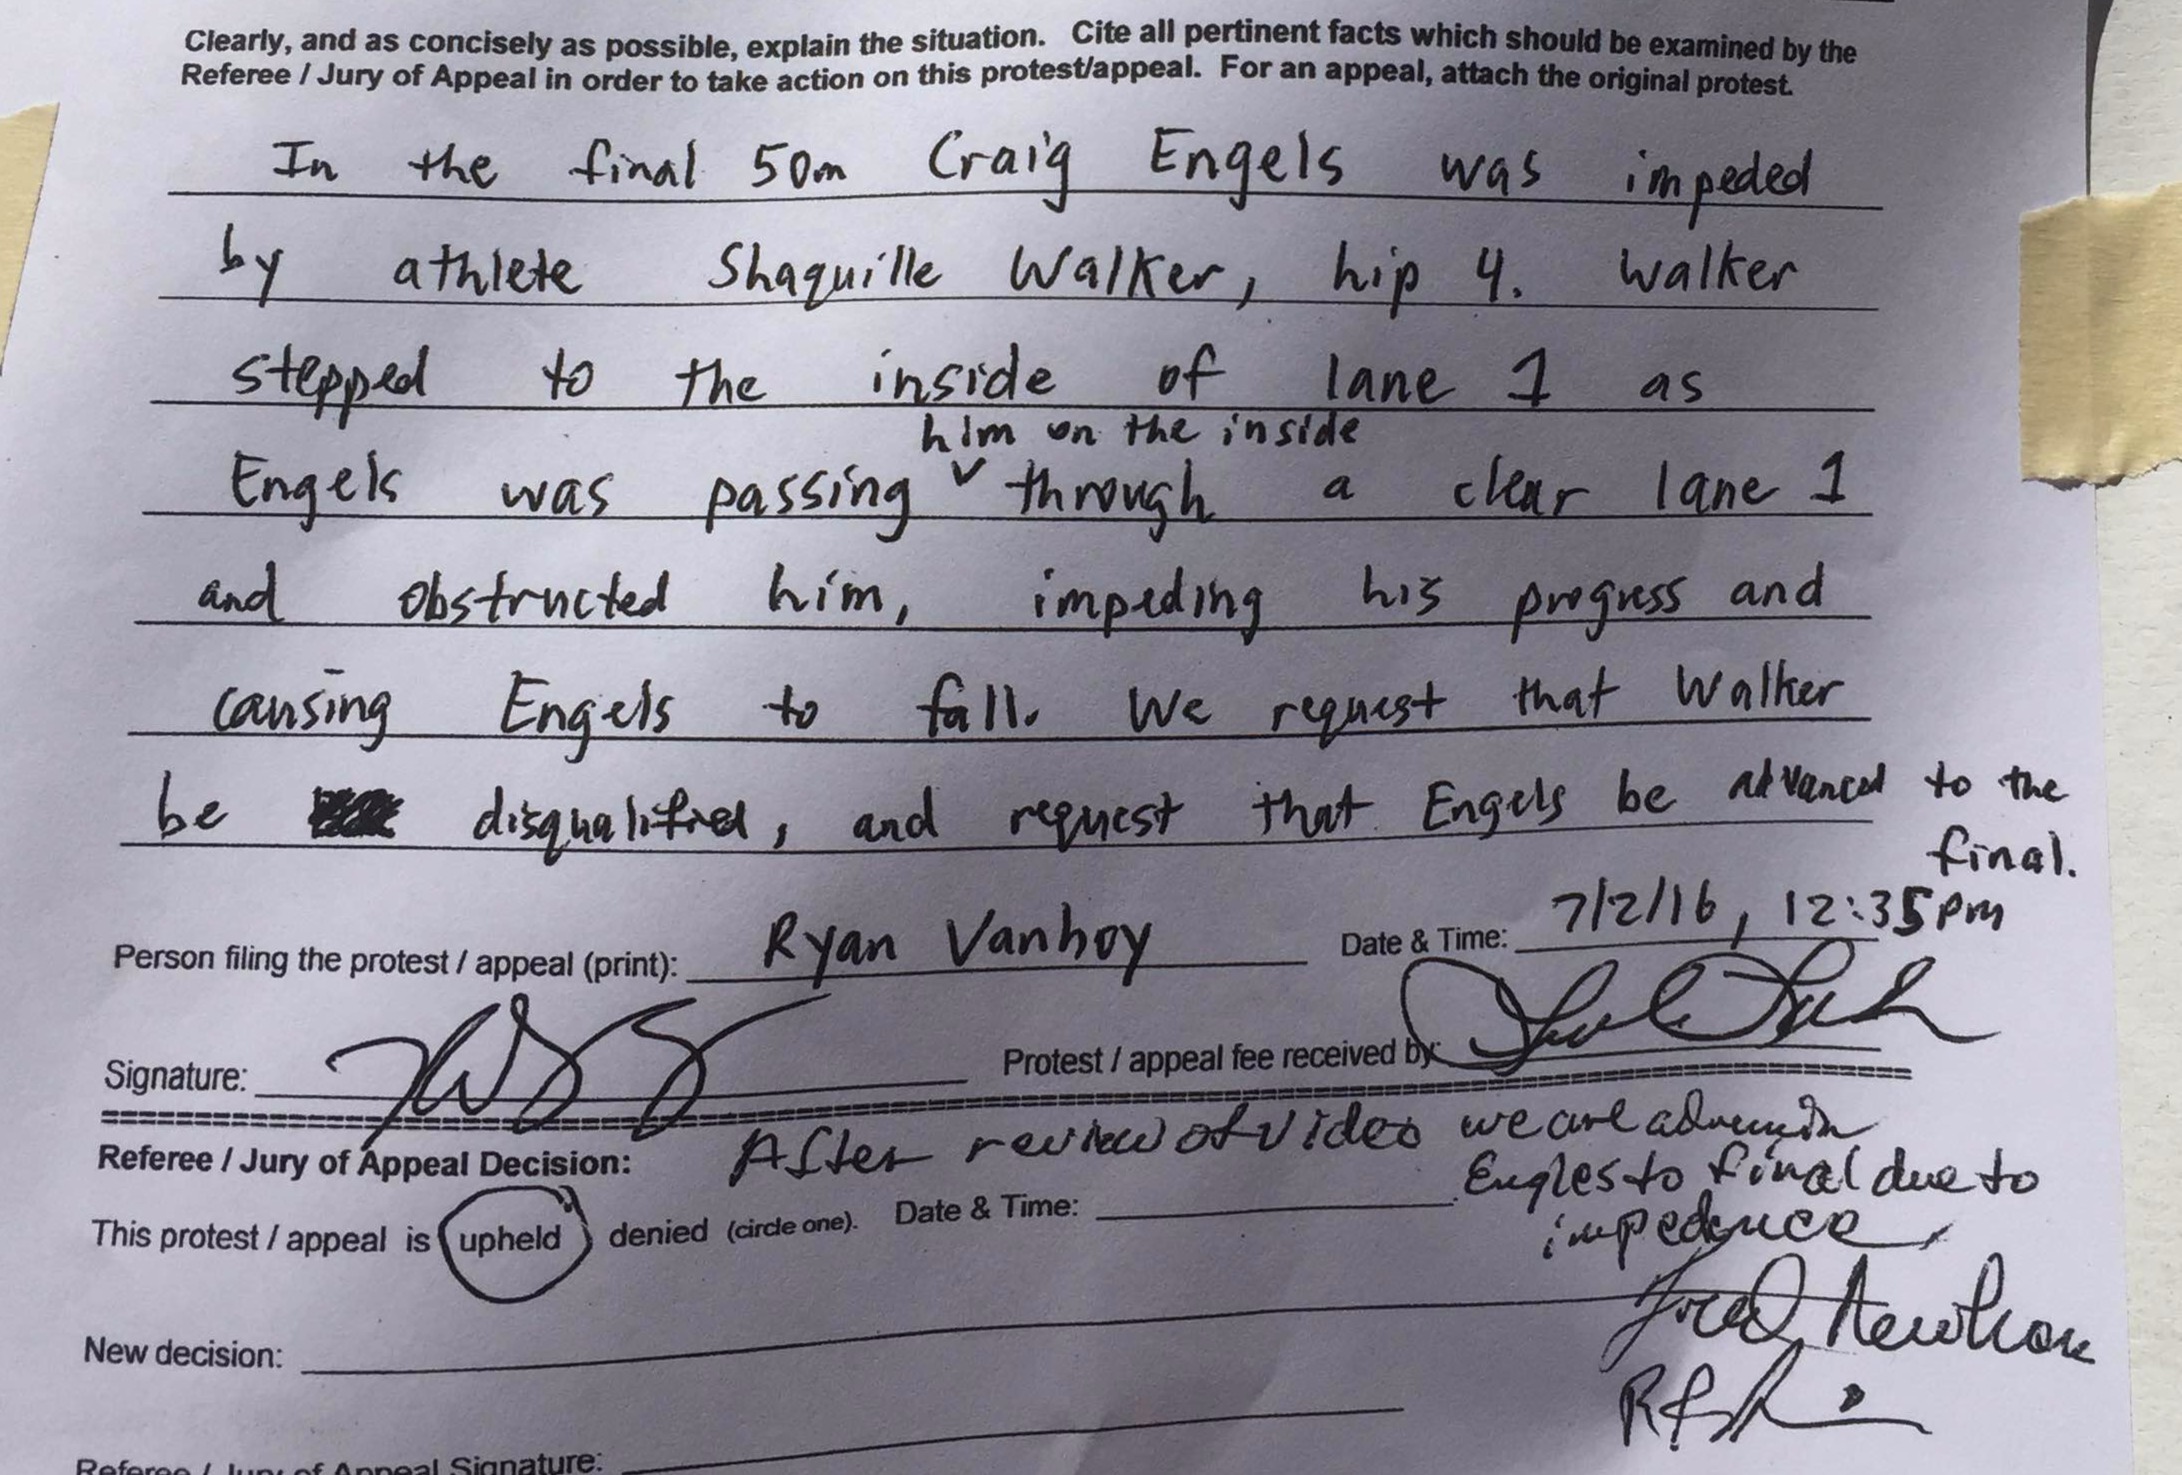 Clearly, and as concisely as possible, explain the situation. Cite all pertinent facts which should be examined by the
Referee / Jury of Appeal in order to take action on this protest/appeal. For an appeal, attach the original protest.
In the final 50m Craig Engels was impeded
by athlete Shaquille Walker, hip 4. Walker
stepped to the inside of lane 1 as
him on the inside
Engels was passing ˅ through a clear lane 1
and obstructed him, impeding his progress and
causing Engels to fall. We request that Walker
be disqualified, and request that Engels be advanced to the
final.
Person filing the protest / appeal (print): Ryan Vanhoy Date & Time: 7/2/16, 12:35pm
Signature: Protest / appeal fee received by:
Referee / Jury of Appeal Decision: After review of video we are
Engles to final due to
This protest / appeal is upheld denied (circle one). Date & Time:
impedence
New decision:
Referee / Jury of Appeal Signature: